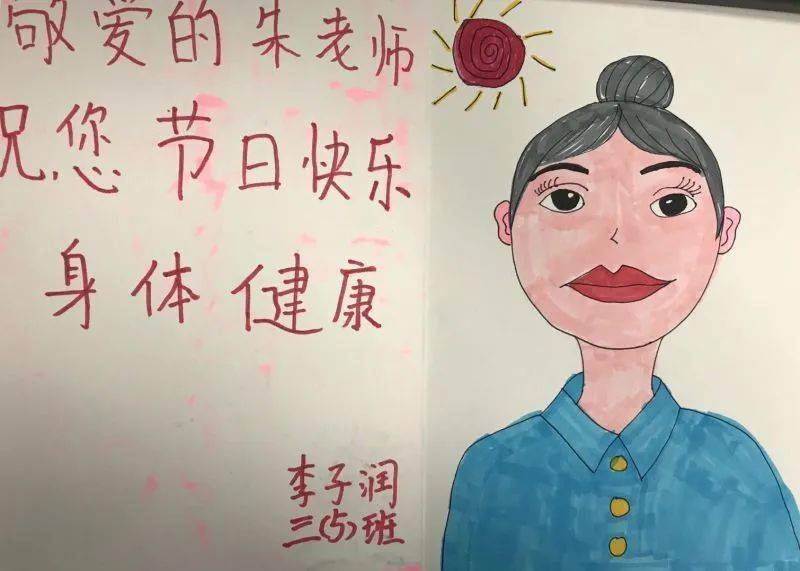 敬爱的朱老师
祝您节日快乐
身体健康
李子润
三(5)班